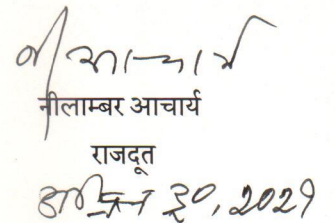 नी आचार्य
नीलाम्बर आचार्य
राजदूत
अप्रिल ३०, २०२१